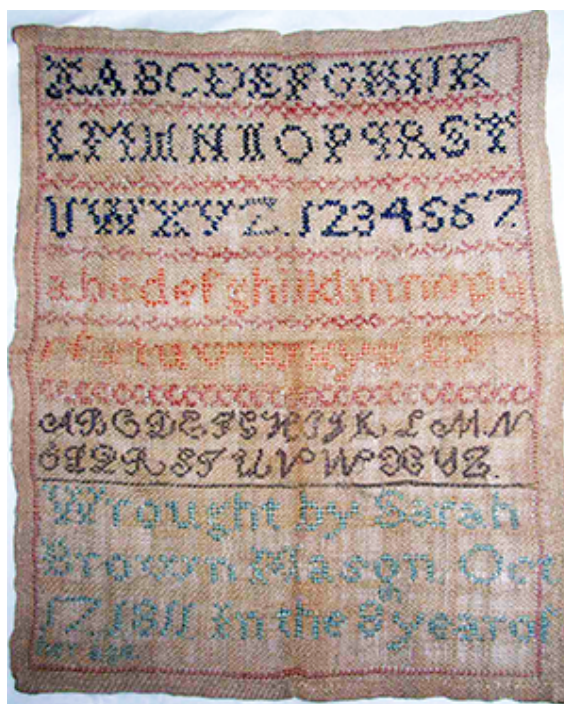 ABCDEFGHIJK
LMNOPQRST
UWXYZ.1234567.
abcdefghiklmnopq
ABCDEFGHIJKLMN
OPQRSTUVWXYZ.
Wrought by Sarah
Brown Mason, Oct
17, 1811 In the 8 year of
her age.